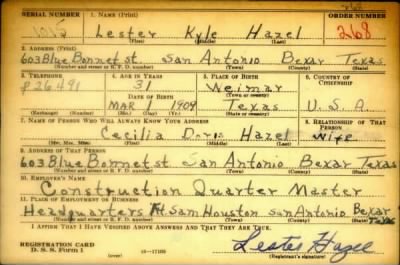 SERIAL NUMBER 1. NAME (Print) ORDER NUMBER
Lester Kyle Hazel 268
(First) (Middle) (Last)
2. ADDRESS (Print)
603 Blue Bonnet st San Antonio Bexar Texas
(Number and street or R. F. D. number) (Town) (County) (State)
3. TELEPHONE 4. AGE IN YEARS 5. PLACE OF BIRTH 6. COUNTRY OF CITIZENSHIP
P26491 31 Weimar
DATE OF BIRTH (Town or county)
MAR 1 1909 Texas U.S.A.
(Exchange) (Number) (Mo.) (Day) (Yr.) (State or country)
7. NAME OF PERSON WHO WILL ALWAYS KNOW YOUR ADDRESS 8. RELATIONSHIP OF THAT PERSON
Cecilia Doris Hazel Wife
(Mr., Mrs., Miss) (First) (Middle) (Last)
9. ADDRESS OF THAT PERSON
603 Blue Bonnet st San Antonio Bexar Texas
(Number and street or R. F. D. number) (Town) (County) (State)
10. EMPLOYER'S NAME
Construction Quarter Master
11. PLACE OF EMPLOYMENT OR BUSINESS
Headquarters Ft Sam Houston San Antonio Bexar Texas
(Number and street or R. F. D. number) (Town) (County) (State)
I AFFIRM THAT I HAVE VERIFIED ABOVE ANSWERS AND THAT THEY ARE TRUE.
REGISTRATION CARD
D. S. S. Form 1 (over) Lester Hazel
(Registrant's signature)